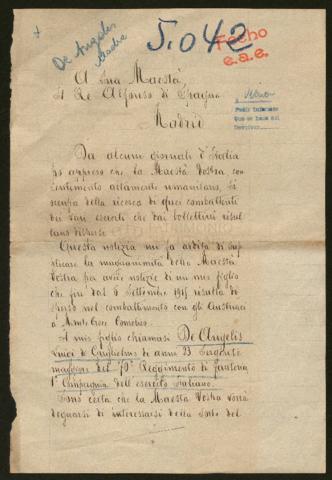 De Angelis
Madre
5.042
Fecho
e.a.e.
A Sua Maestà
Il Re Alfonso di Spagna
Madrid
Viena
Pedir informes
Que se haga del
Da alcuni giornali d'Italia
ho appreso che la Maestà Vostra con
sentimento altamente umanitario, si
della ricerca di quei combattenti
dei vari eserciti che dai bollettini risul
tano dispersi.
Questa notizia mi fa ardita di sup
plicare la magnanimità della Maestà
Vostra per avere notizie di un mio figlio
che fin dal 8 Settembre 1915 risulta di
sperso nel combattimento con gli Austriaci
a Monte Croce Comelico.
Il mio figlio chiamasi De Angelis
Luigi di Guglielmo di anni 33 Sergente
maggiore del 70° Reggimento di fanteria
1ª Compagnia dell'esercito Italiano.
Sono certa che la Maestà Vostra vorrà
degnarsi di interessarsi della sorte del